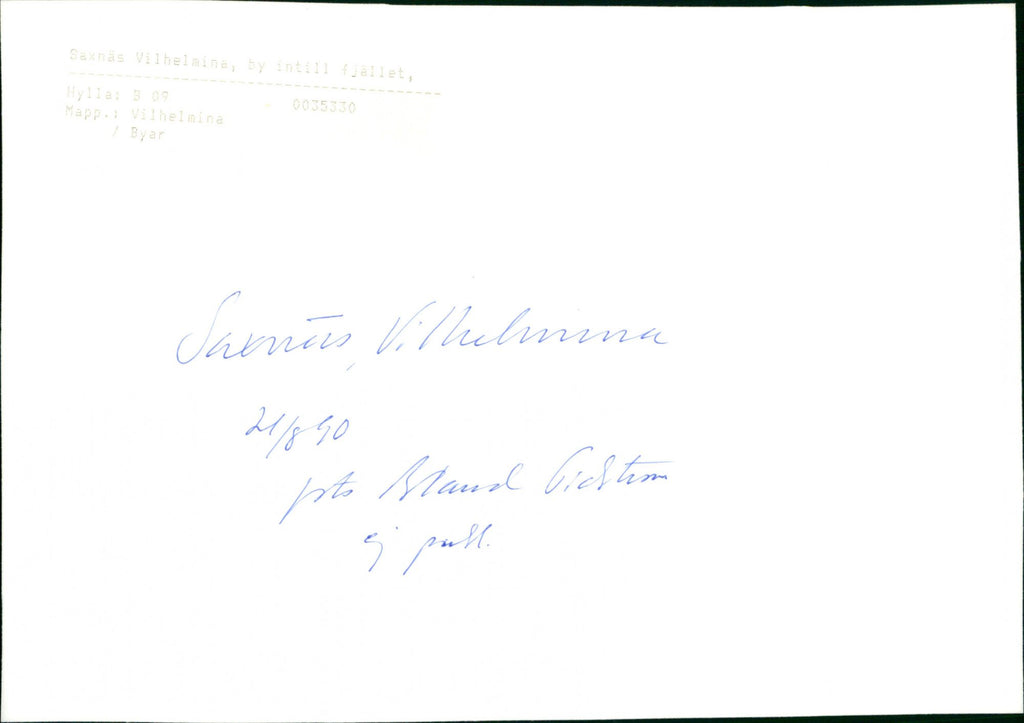 Saxnäs Vilhelmina, by intill fjället,
----------------------------------------
Hylla: B 09 0035330
Mapp.: Vilhelmina
/ Byar
Saxnäs, Vilhelmina
21/8 90
foto Erland
ej publ.